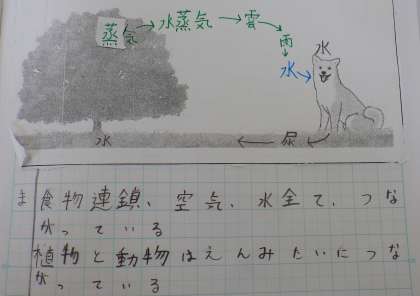 蒸気→水蒸気→雲
雨
水→
水
水
尿
ま 食物連鎖、空気、水全て、つな
がっている
植物と動物はえんみたいにつな
がっている